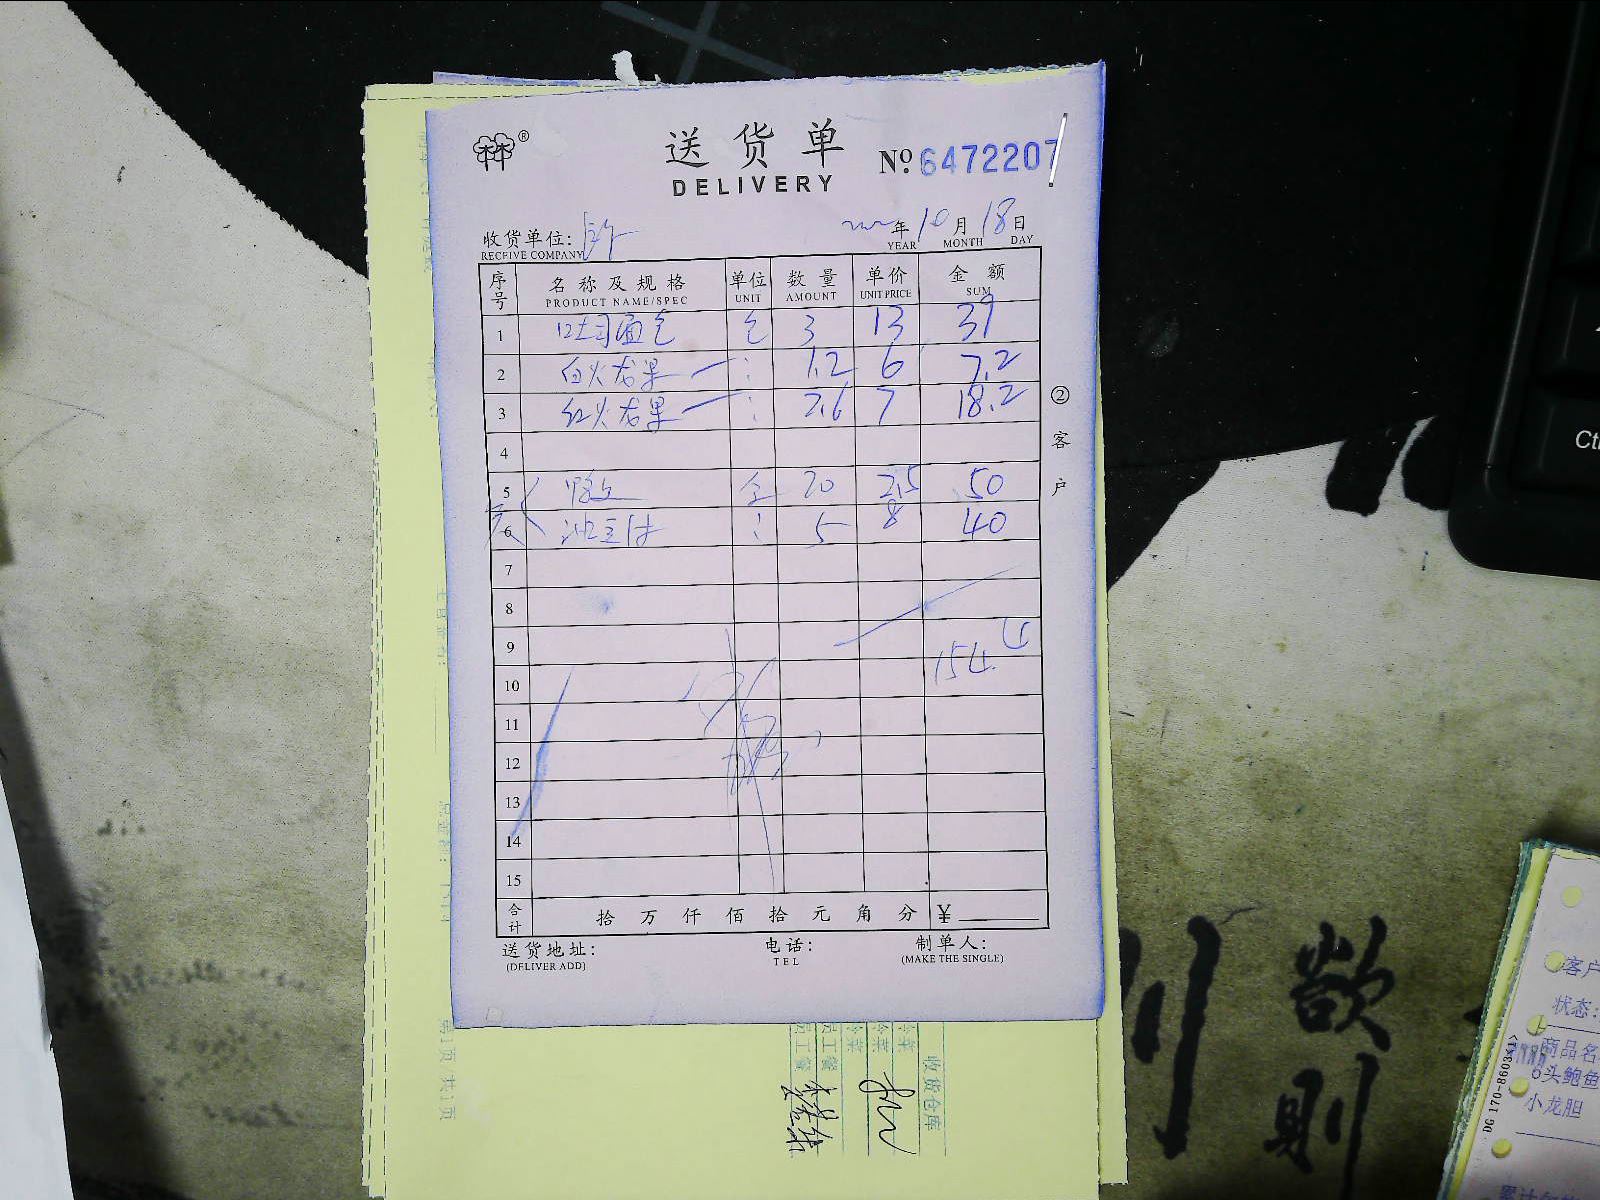 林®
送货单
DELIVERY
№ 6472207
收货单位:
RECEIVE COMPANY
年 10 月 18 日
YEAR MONTH DAY
序号 名称及规格 单位 数量 单价 金额
PRODUCT NAME/SPEC UNIT AMOUNT UNIT PRICE SUM
1 吐司面包 包 3 13 39
2 白火龙果 : 1.2 6 7.2
3 红火龙果 : 2.6 7 18.2
4
5 20 2.5 50
6 : 5 8 40
7
8
9
10 154.4
11
12
13
14
15
合计 拾 万 仟 佰 拾 元 角 分 ¥
送货地址: 电话: 制单人:
(DELIVER ADD) TEL (MAKE THE SINGLE)
②客户
收货仓库
Ctr
欲
则
客户
状态:
商品名
6头鲍鱼
小龙胆
DG 170-8603<1>